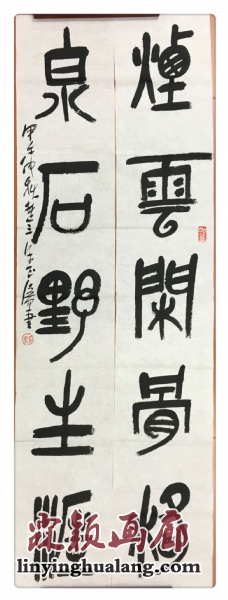 煙雲閑骨格
泉石野生涯
甲午仲秋
霖颖画廊
linyinghualang.com